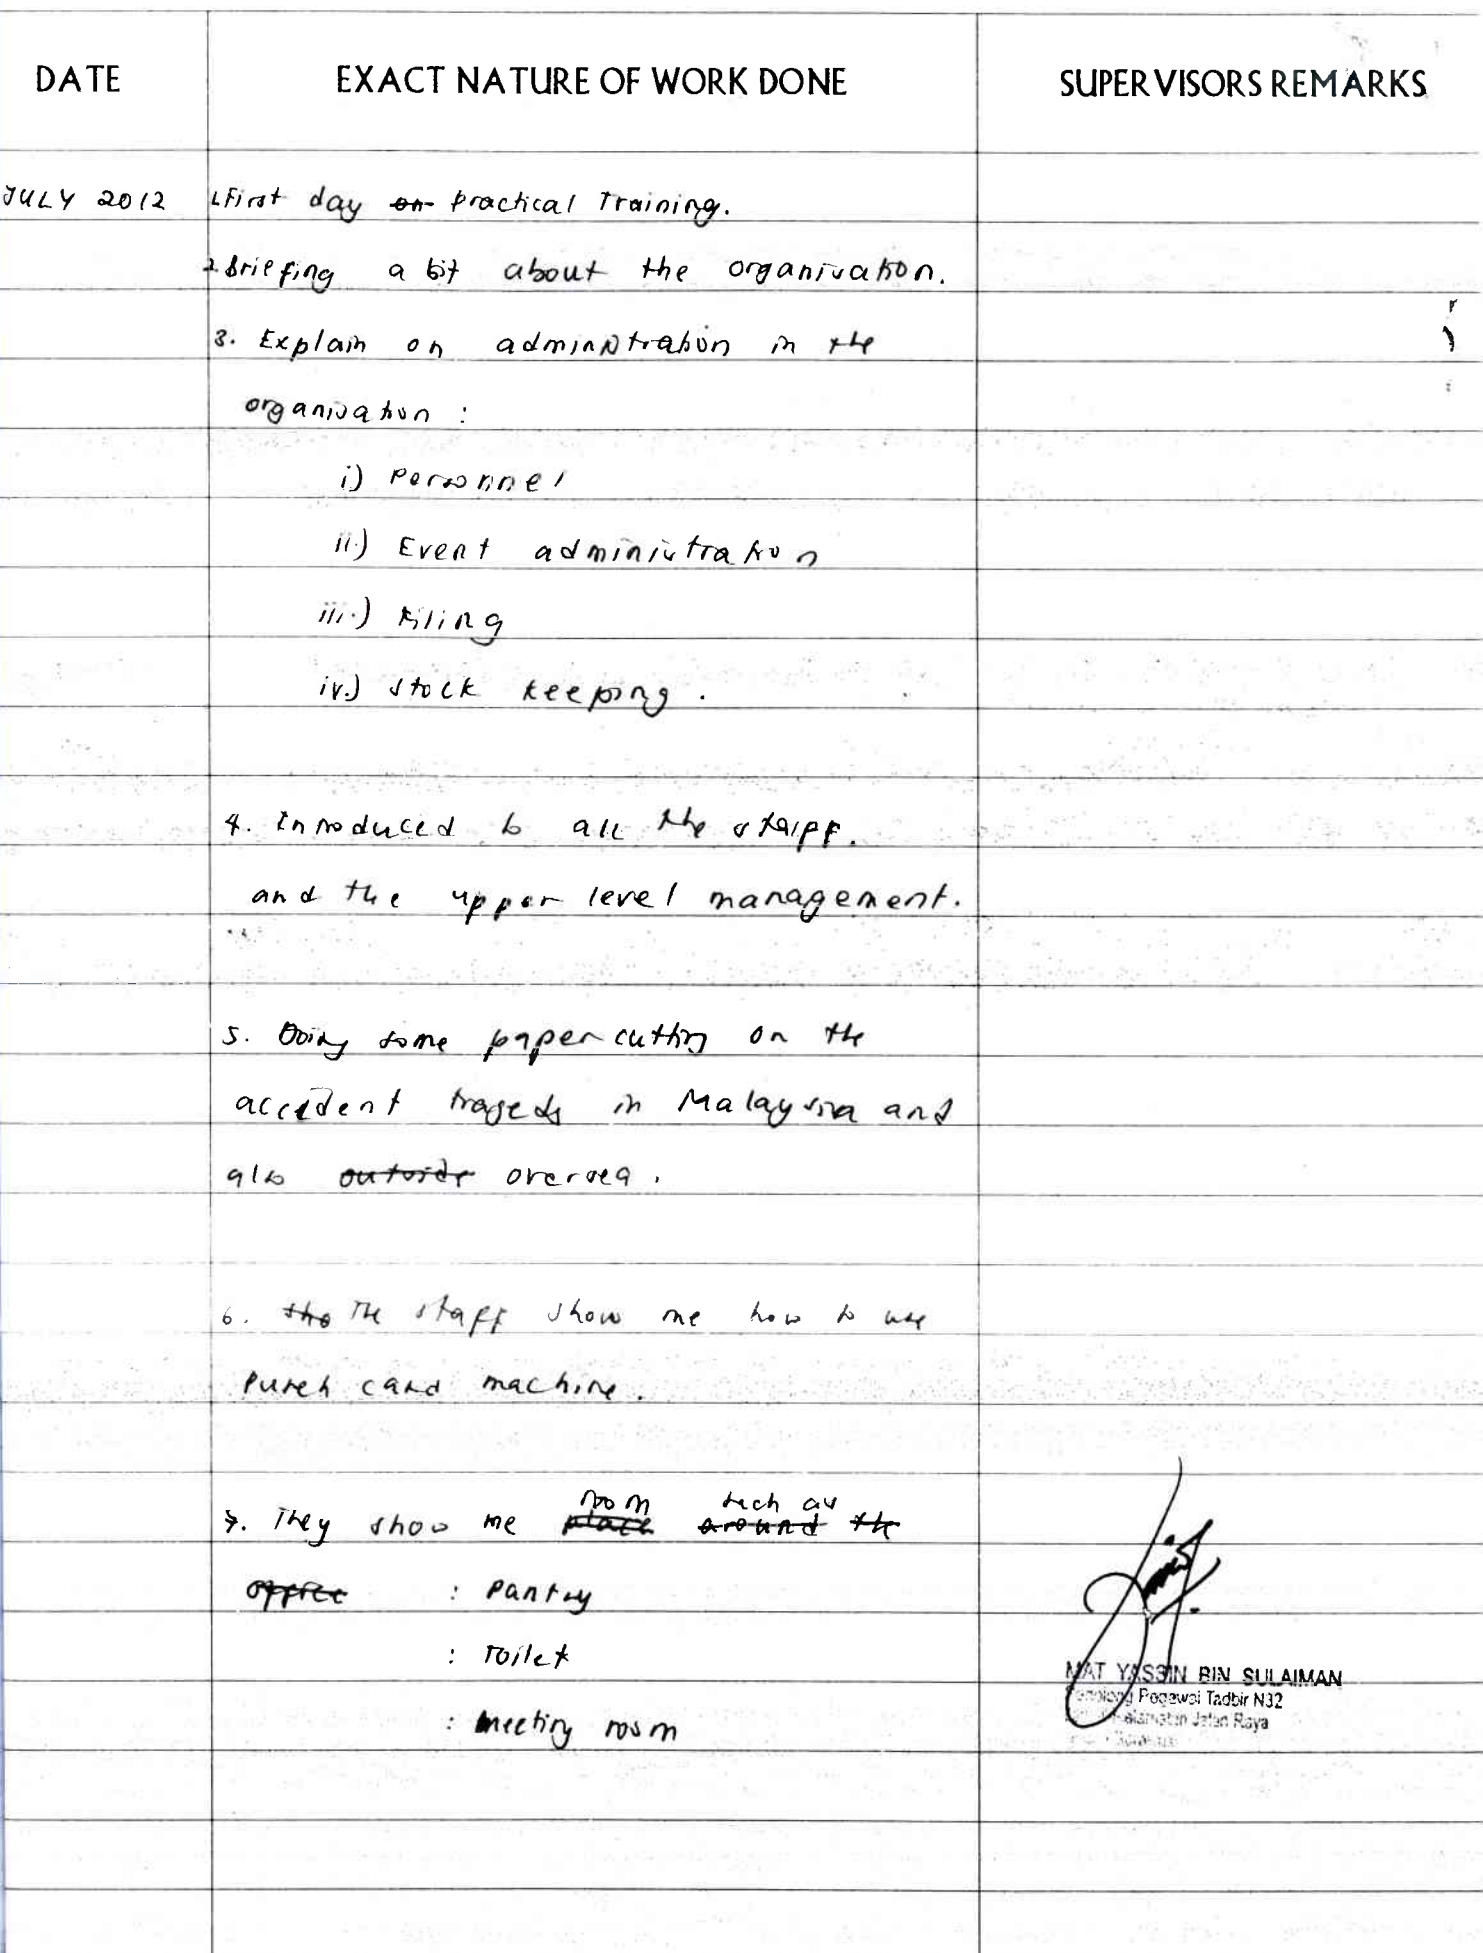 DATE EXACT NATURE OF WORK DONE SUPERVISORS REMARKS
JULY 2012 1. First day on practical Training.
2. Briefing a bit about the organisation.
3. Explain on administration in the
organisation :
i) Personnel
ii.) Event administration
iii.) Filing
iv.) Stock keeping.
4. Introduced to all the staff.
and the upper level management.
5. Doing some paper cutting on the
accident tragedy in Malaysia and
also outside oversea.
6. the The staff show me how to use
punch card machine.
room such as
7. They show me place around the
office : Pantry
: Toilet
: Meeting room
MAT YASSIN BIN SULAIMAN
Pegawai Tadbir N32
Jalan Raya